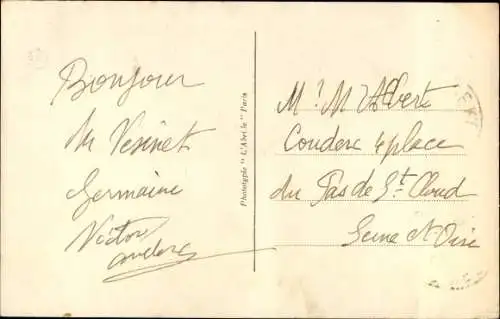 Bonjour
du Vesinet
Germaine
Victor
Couderc
Phototypie "L'Abeille" Paris
Mr M Albert
Couderc 4 place
du Pas de St Cloud
Seine et Oise